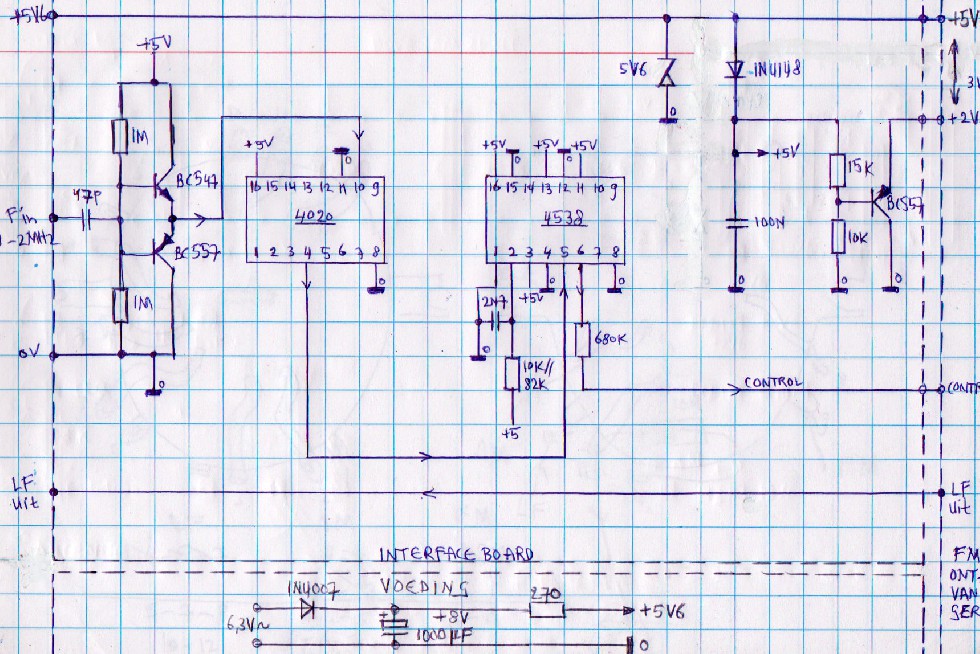 +5V6
+5V
+5V
1M
BC547
47P
F in
1-2MHz
BC557
1M
0V
0
+5V
0
16 15 14 13 12 11 10 9
4020
1 2 3 4 5 6 7 8
0
+5V 0 +5V 0 +5V
16 15 14 13 12 11 10 9
4538
1 2 3 4 5 6 7 8
2N7
+5V
0
0
0
10K//
82K
+5
680K
5V6
0
1N4148
+5V
100N
0
15K
10K
0
BC557
0
+2V
CONTROL
LF
uit
LF
uit
INTERFACE BOARD
FM
ONT-
VAN
GER
VOEDING
1N4007
6,3V~
+8V
1000µF
270
+5V6
0